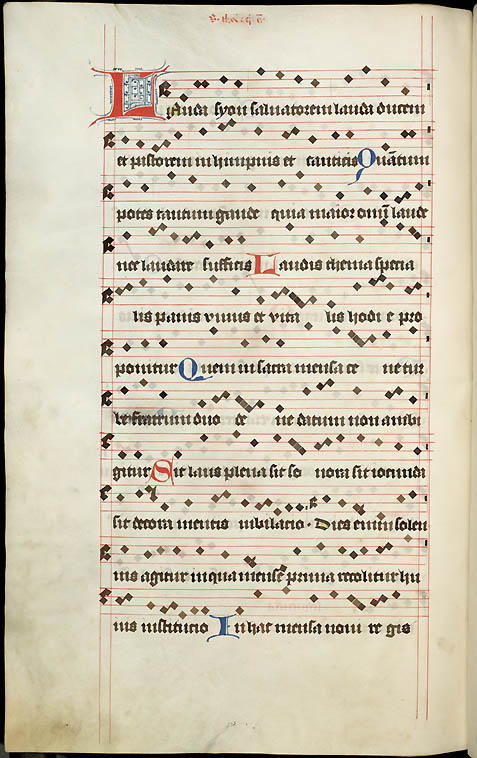 Lauda syon salvatorem lauda ducem
et pastorem in himpnis et canticis Quātum
potes tantum gaude quia maior omni laude
nec laudare sufficis Laudis thema specia
lis panis vivus et vita lis hodi e pro
ponitur Quem in sacra mensa ce ne tur
be fratrum duo de ne datum non ambi
gitur Sit laus plena sit so nora sit iocunda
sit decora mentis iubilacio. Dies enim solen
nis agitur in qua mense prima recolitur hu
ius institucio In hac mensa novi re gis